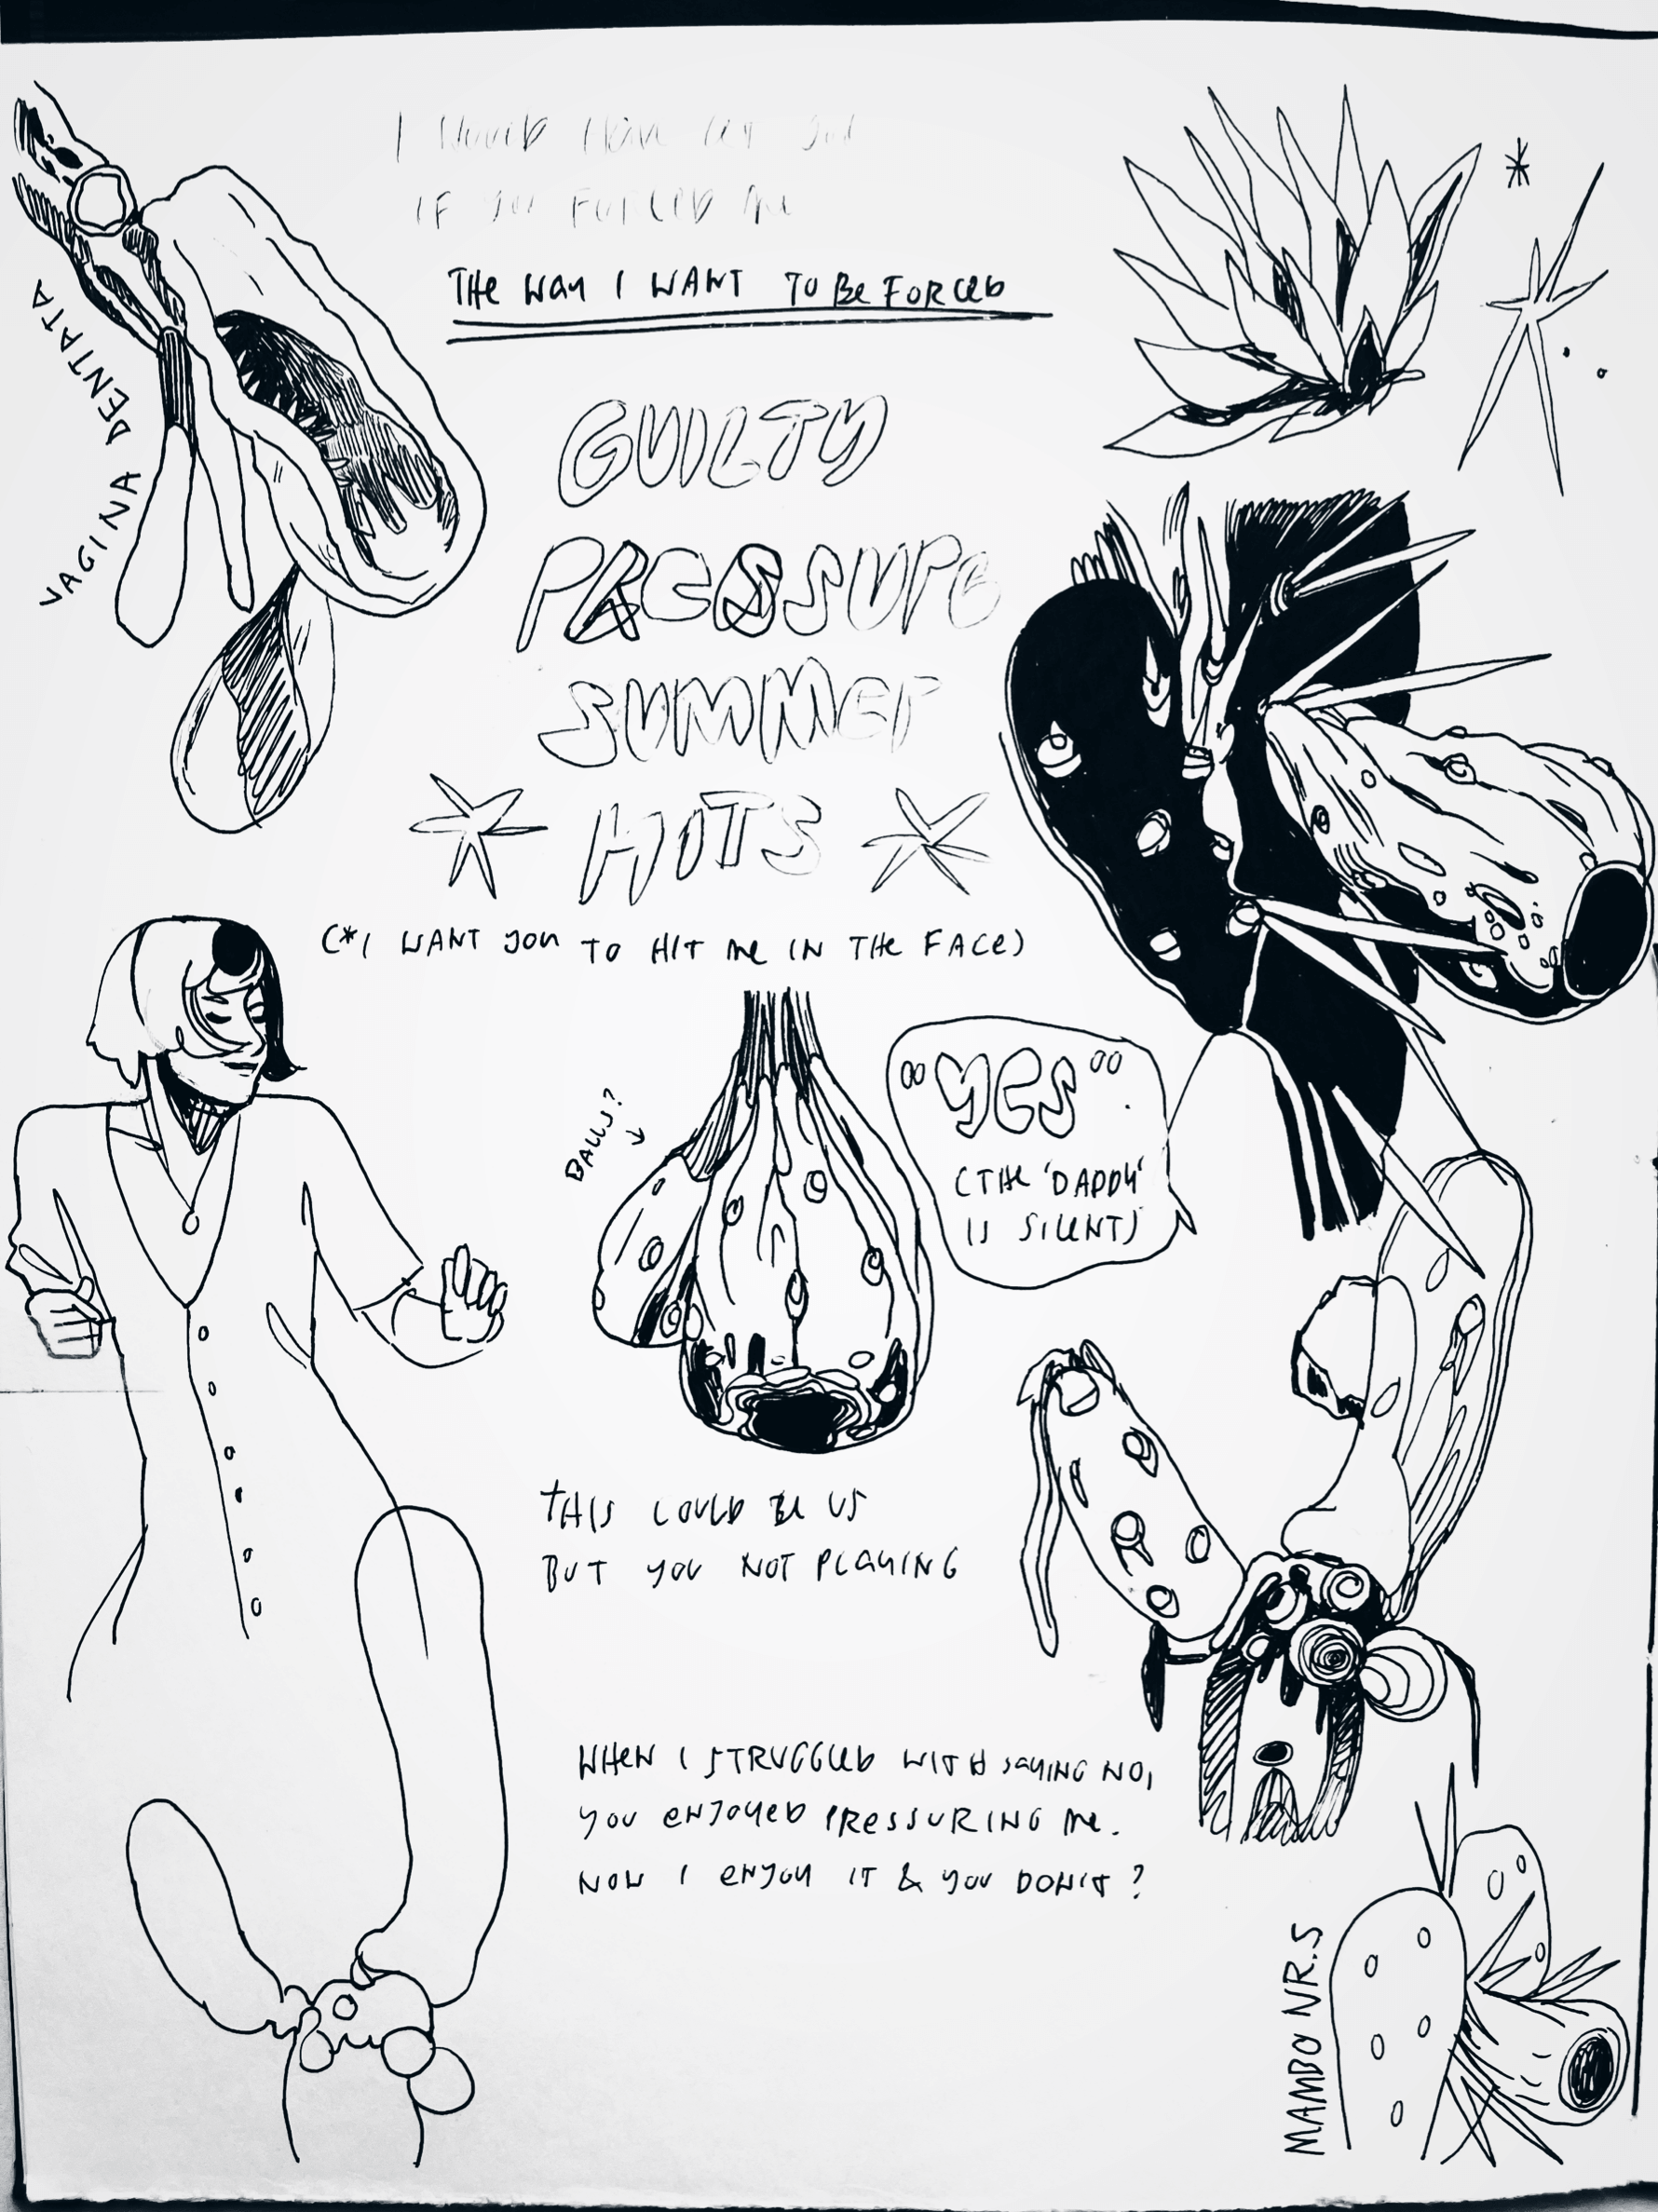 I WOULD HAVE LET YOU
IF YOU FORCED ME
THE WAY I WANT TO BE FORCED
VAGINA DENTATA
GUILTY
PRESSURE
SUMMER
HITS
(*I WANT YOU TO HIT ME IN THE FACE)
BALLS?
"YES"
(THE 'DADDY'
IS SILENT)
THIS COULD BE US
BUT YOU NOT PLAYING
WHEN I STRUGGLED WITH SAYING NO,
YOU ENJOYED PRESSURING ME.
NOW I ENJOY IT & YOU DON'T?
MAMBO NR.5